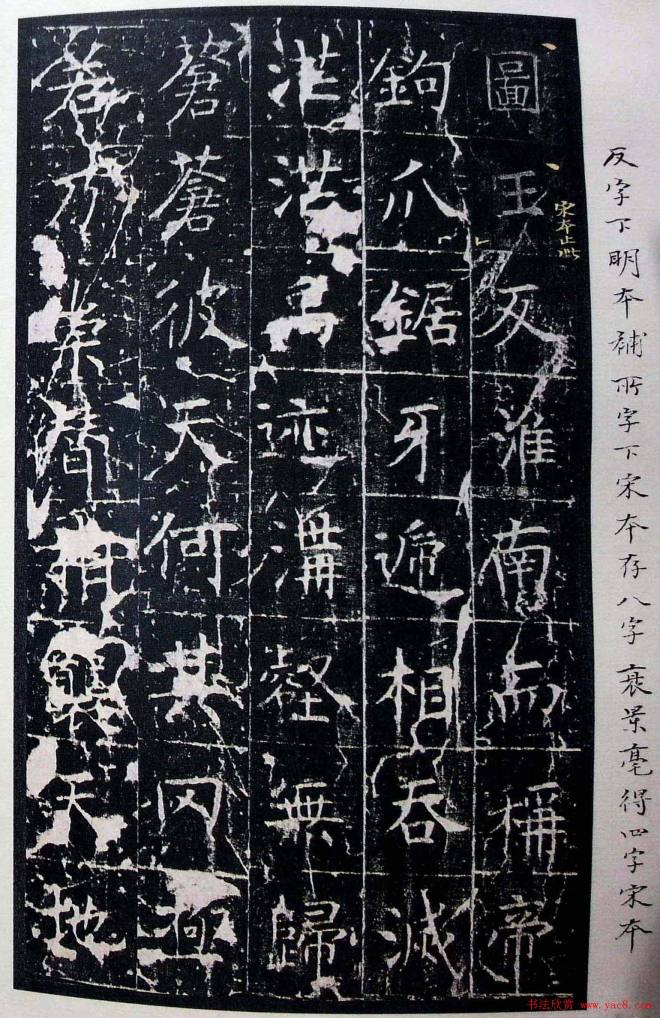 反字下明本補所字下宋本存八字景亳得四字宋本
圖王反淮南而稱帝
宋本止此
鉤爪鋸牙遞相吞滅
茫茫禹迹溝壑無歸
蒼蒼彼天何其罔極
若替襲天地
书法欣赏 www.yac8.com